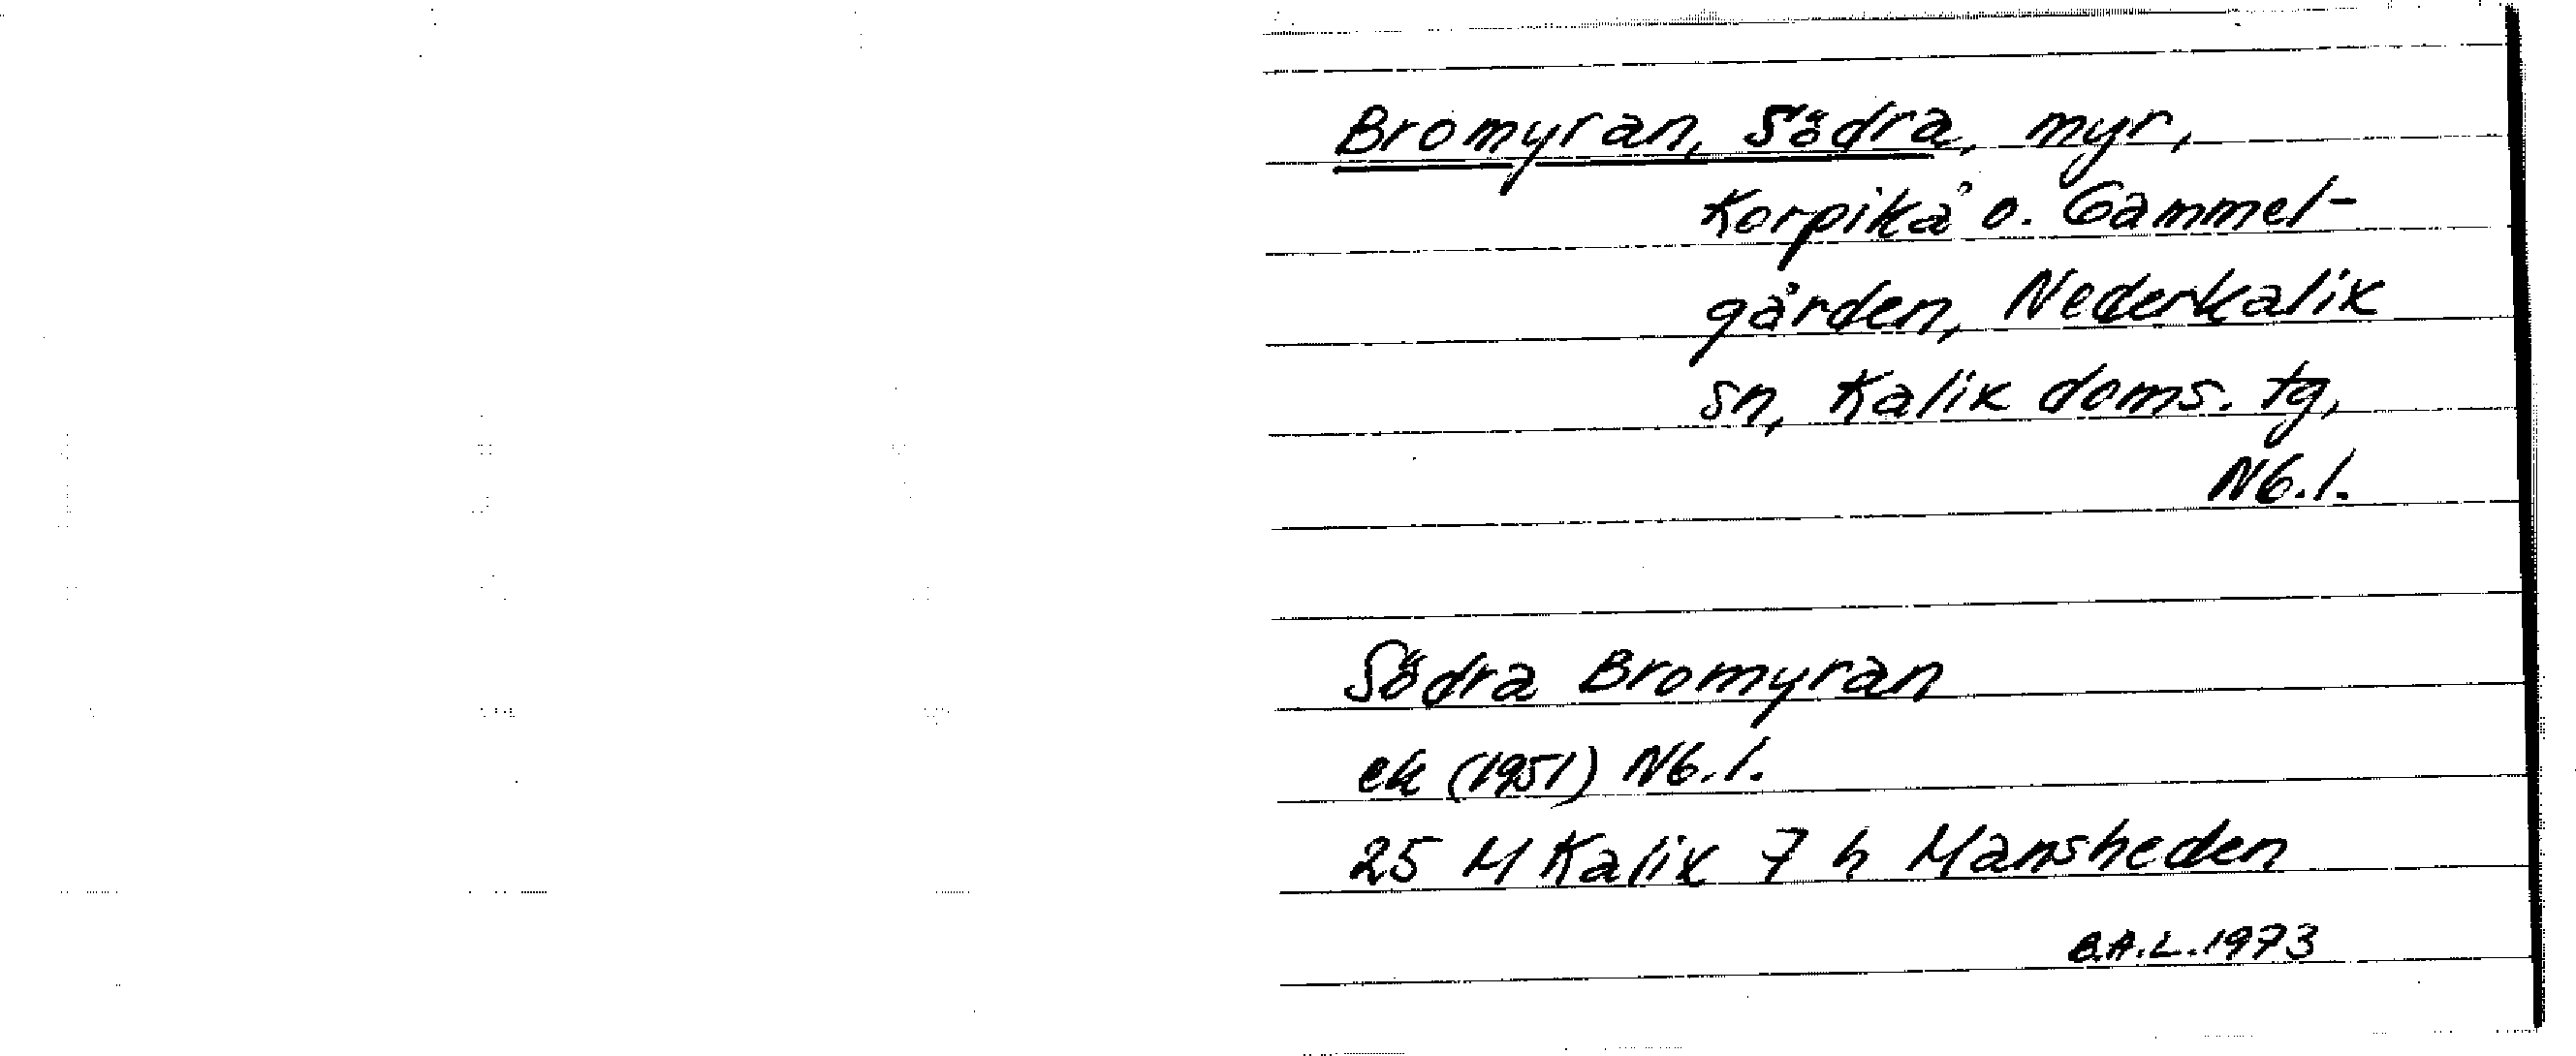 Bromyran, Södra, myr,
Korpikå o. Gammel-
gården, Nederkalix
sn, Kalix doms. tg,
Nb.l.
Södra Bromyran
ek (1951) Nb.l.
25 M Kalix 7 h Mansheden
B.A.L. 1973